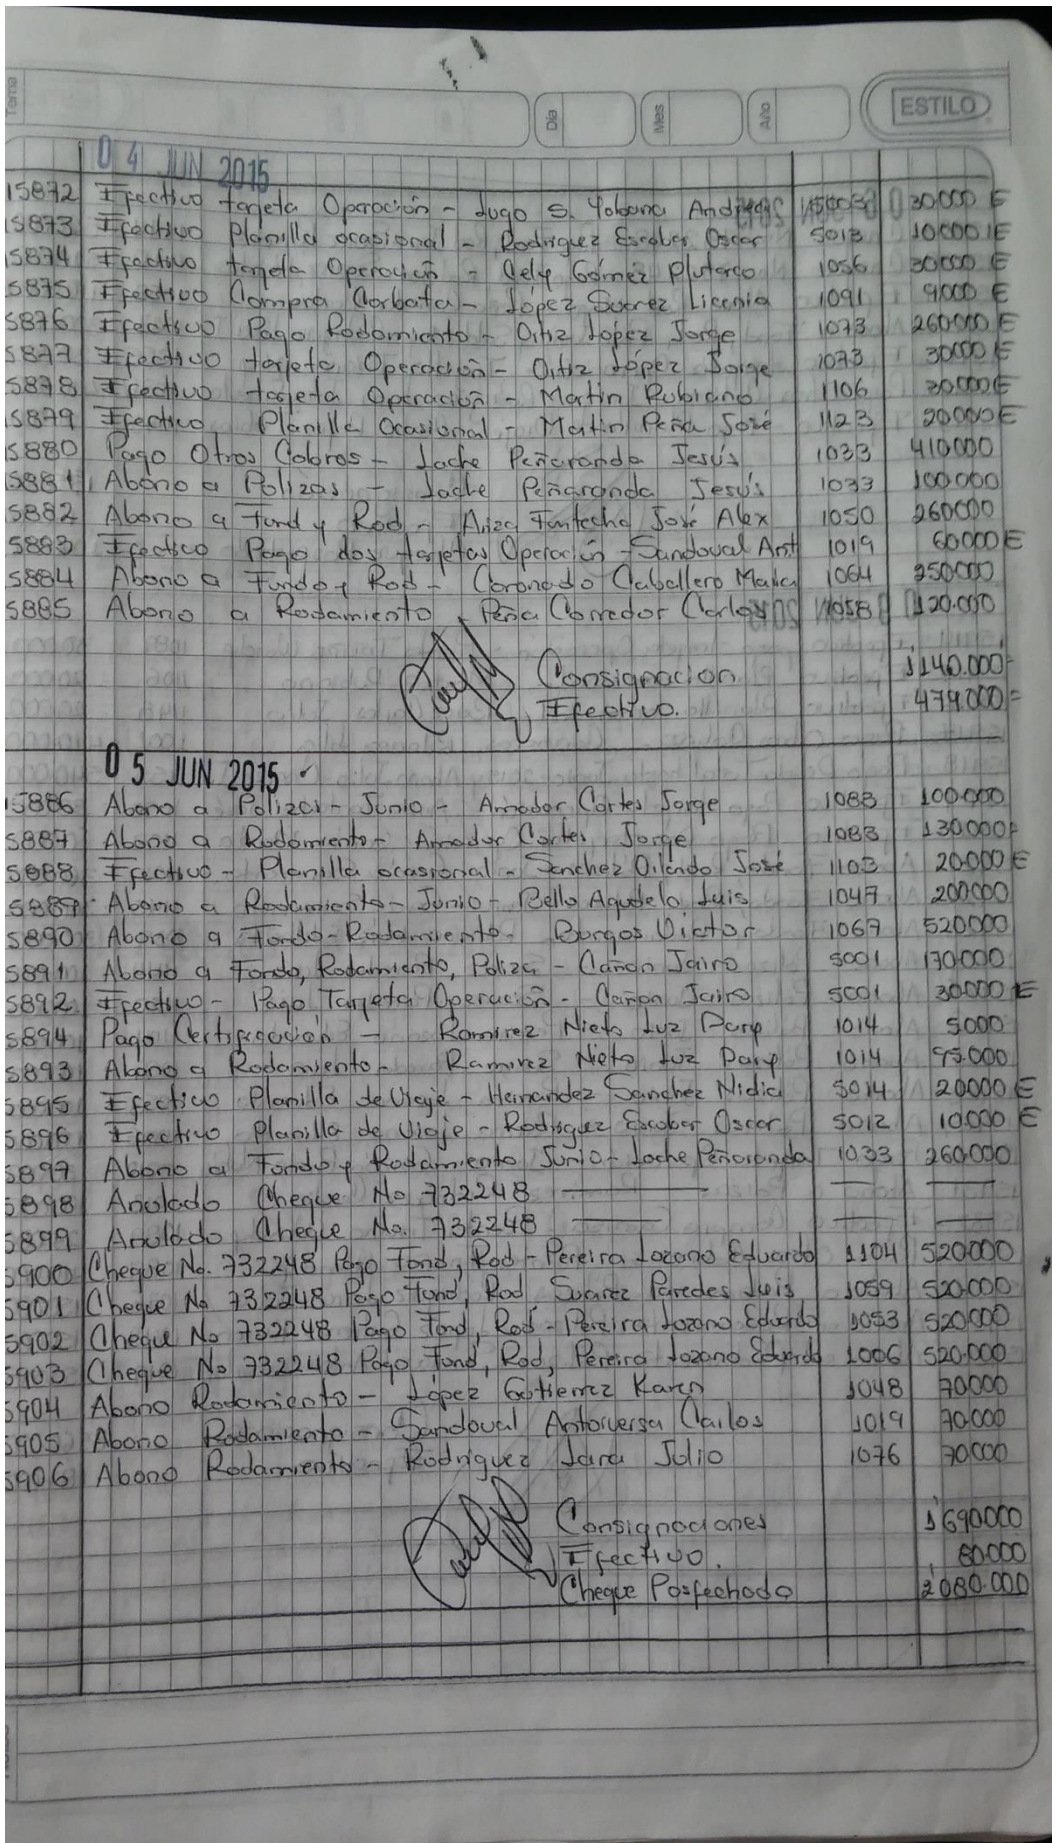 Tema
Día
Mes
Año
ESTILO
04 JUN 2015
15872 Efectivo tarjeta Operación - Lugo S. Yobana Andrea 30.000 E
5873 Efectivo Planilla ocasional - Rodriguez Escobar Oscar 5013 10.000 E
5874 Efectivo tarjeta Operación - Cely Gómez Plutarco 1056 30.000 E
5875 Efectivo Compra Corbata - López Suarez Licenia 1091 9.000 E
5876 Efectivo Pago Rodamiento - Ortiz López Jorge 1073 260.000 E
5877 Efectivo tarjeta Operación - Ortiz López Jorge 1073 30.000 E
5878 Efectivo tarjeta Operación - Martin Rubiano 1106 30.000 E
5879 Efectivo Planilla Ocasional - Martin Peña José 1123 20.000 E
5880 Pago Otros Cobros - Lache Peñaranda Jesús 1033 410.000
5881 Abono a Polizas - Lache Peñaranda Jesús 1033 100.000
5882 Abono a Fond y Rod - Ariza Fontecha José Alex 1050 260.000
5883 Efectivo Pago dos tarjetas Operación - Sandoval Ant 1019 60.000 E
5884 Abono a Fondo y Rod - Coronado Caballero Maria 1064 250.000
5885 Abono a Rodamiento - Peña Corredor Carlos 1058 120.000
Consignacion 1'140.000=
Efectivo. 479.000=
05 JUN 2015
15886 Abono a Polizas - Junio - Amador Cortes Jorge 1088 100.000
5887 Abono a Rodamiento - Amador Cortes Jorge 1088 130.000
5888 Efectivo - Planilla ocasional - Sanchez Orlando José 1103 20.000 E
5889 Abono a Rodamiento - Junio - Bello Agudelo Luis 1047 200.000
5890 Abono a Fondo - Rodamiento - Burgos Victor 1067 520.000
5891 Abono a Fondo, Rodamiento, Poliza - Cañon Jairo 5001 170.000
5892 Efectivo - Pago Tarjeta Operación - Cañon Jairo 5001 30.000 E
5894 Pago Certificación - Ramirez Nieto Luz Dary 1014 5.000
5893 Abono a Rodamiento - Ramirez Nieto Luz Dary 1014 95.000
5895 Efectivo Planilla de Viaje - Hernandez Sanchez Nidia 5014 20.000 E
5896 Efectivo Planilla de Viaje - Rodriguez Escobar Oscar 5012 10.000 E
5897 Abono a Fondo y Rodamiento Junio - Lache Peñaranda 1033 260.000
5898 Anulado Cheque No 732248
5899 Anulado Cheque No. 732248
5900 Cheque No. 732248 Pago Fond, Rod - Pereira Lozano Eduardo 1104 520.000
5901 Cheque No 732248 Pago Fond, Rod Suarez Paredes Luis 1059 520.000
5902 Cheque No 732248 Pago Fond, Rod - Pereira Lozano Eduardo 1053 520.000
5903 Cheque No 732248 Pago Fond, Rod, Pereira Lozano Eduardo 1006 520.000
5904 Abono Rodamiento - López Gutierrez Karen 1048 70.000
5905 Abono Rodamiento - Sandoval Antorversa Carlos 1019 70.000
5906 Abono Rodamiento - Rodriguez Jara Julio 1076 70.000
Consignaciones 1'690.000
Efectivo. 80.000
Cheque Posfechado 2'080.000